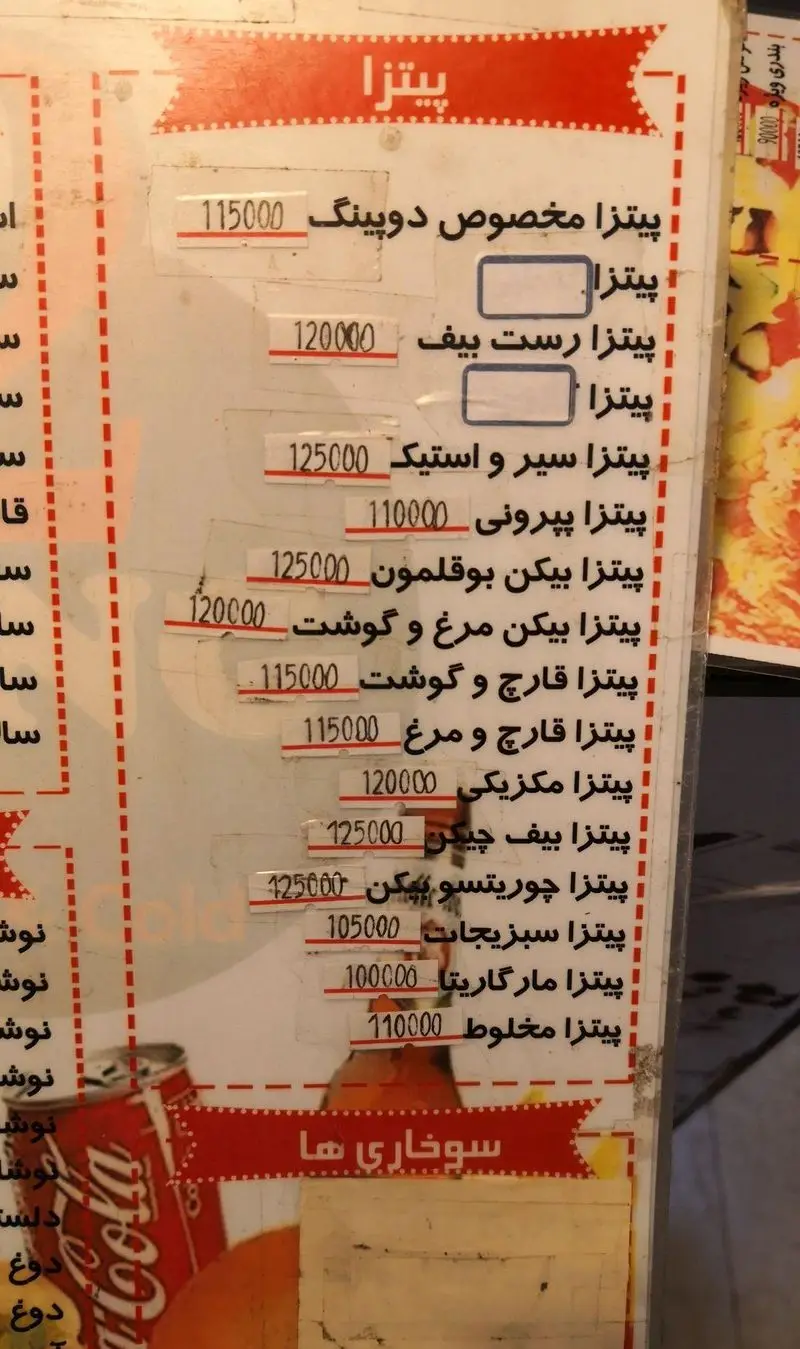 پیتزا
پیتزا مخصوص دوپینگ 115000
پیتزا
پیتزا رست بیف 120000
پیتزا
پیتزا سیر و استیک 125000
پیتزا پپرونی 110000
پیتزا بیکن بوقلمون 125000
پیتزا بیکن مرغ و گوشت 120000
پیتزا قارچ و گوشت 115000
پیتزا قارچ و مرغ 115000
پیتزا مکزیکی 120000
پیتزا بیف چیکن 125000
پیتزا چوریتسو بیکن 125000
پیتزا سبزیجات 105000
پیتزا مارگاریتا 100000
پیتزا مخلوط 110000
سوخاری ها
بندری ویژه 90000
Gold
دوغ
دوغ
Coca-Cola